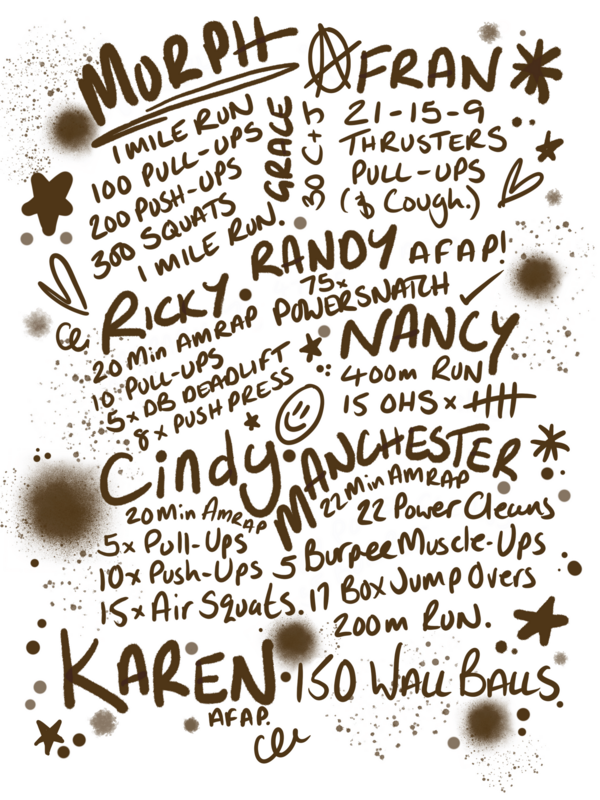 MURPH
1 MILE RUN
100 PULL-UPS
200 PUSH-UPS
300 SQUATS
1 MILE RUN.
GRACE
30 C+J
FRAN
21-15-9
THRUSTERS
PULL-UPS
(& Cough.)
RANDY AFAP!
75x
POWERSNATCH
RICKY.
20 Min AMRAP
10 PULL-UPS
5x DB DEADLIFT
8x PUSH PRESS
NANCY
400m RUN
15 OHS x 5
Cindy.
20 Min AMRAP
5x Pull-Ups
10x Push-Ups
15x Air Squats.
MANCHESTER
22 Min AMRAP
22 Power Cleans
5 Burpee Muscle-Ups
17 Box Jump Overs
200m RUN.
KAREN.
AFAP.
150 WALL BALLS